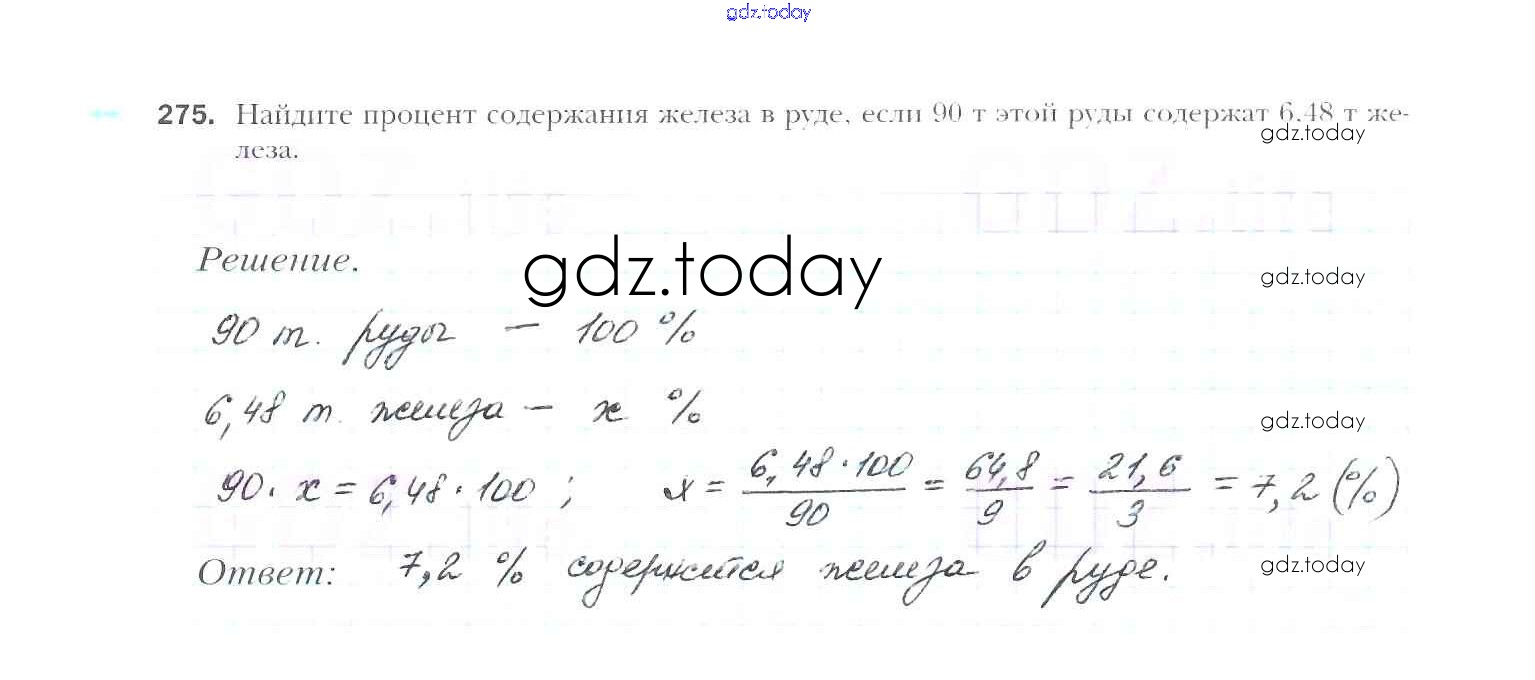 gdz.today
275. Найдите процент содержания железа в руде, если 90 т этой руды содержат 6,48 т же-
gdz.today
леза.
Решение.
gdz.today
gdz.today
90 т. руды — 100 %
6,48 т. железа — x %
gdz.today
90 · x = 6,48 · 100 ; x = 6,48 · 100 / 90 = 64,8 / 9 = 21,6 / 3 = 7,2 (%)
Ответ: 7,2 % содержится железа в руде.
gdz.today